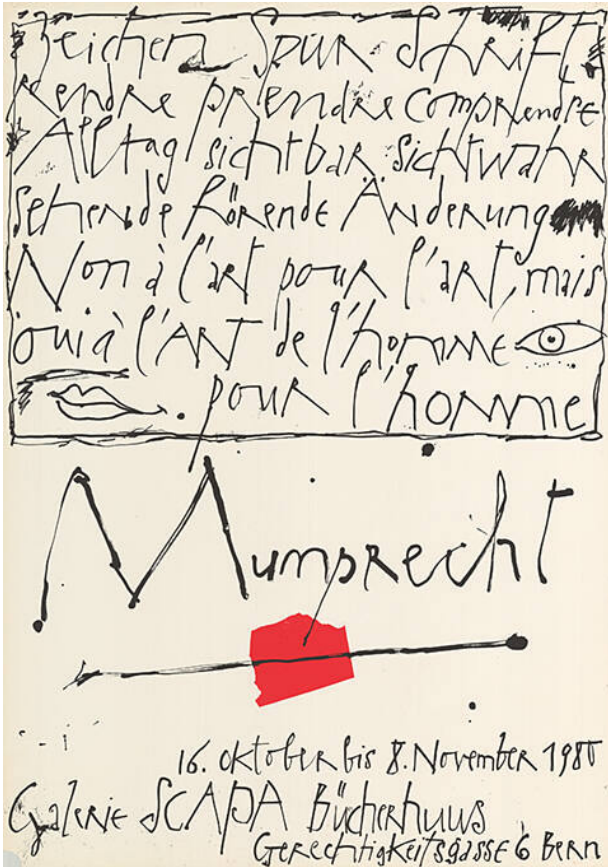 Zeichen Spur Schrift
Rendre prendre comprendre
Alltag sichtbar sichtwahr
Sehende hörende Änderung
Non à l'art pour l'art, mais
oui à l'ART de l'homme
pour l'homme
Mumprecht
16. Oktober bis 8. November 1980
Galerie SCAPA Bücherhuus
Gerechtigkeitsgasse 6 Bern